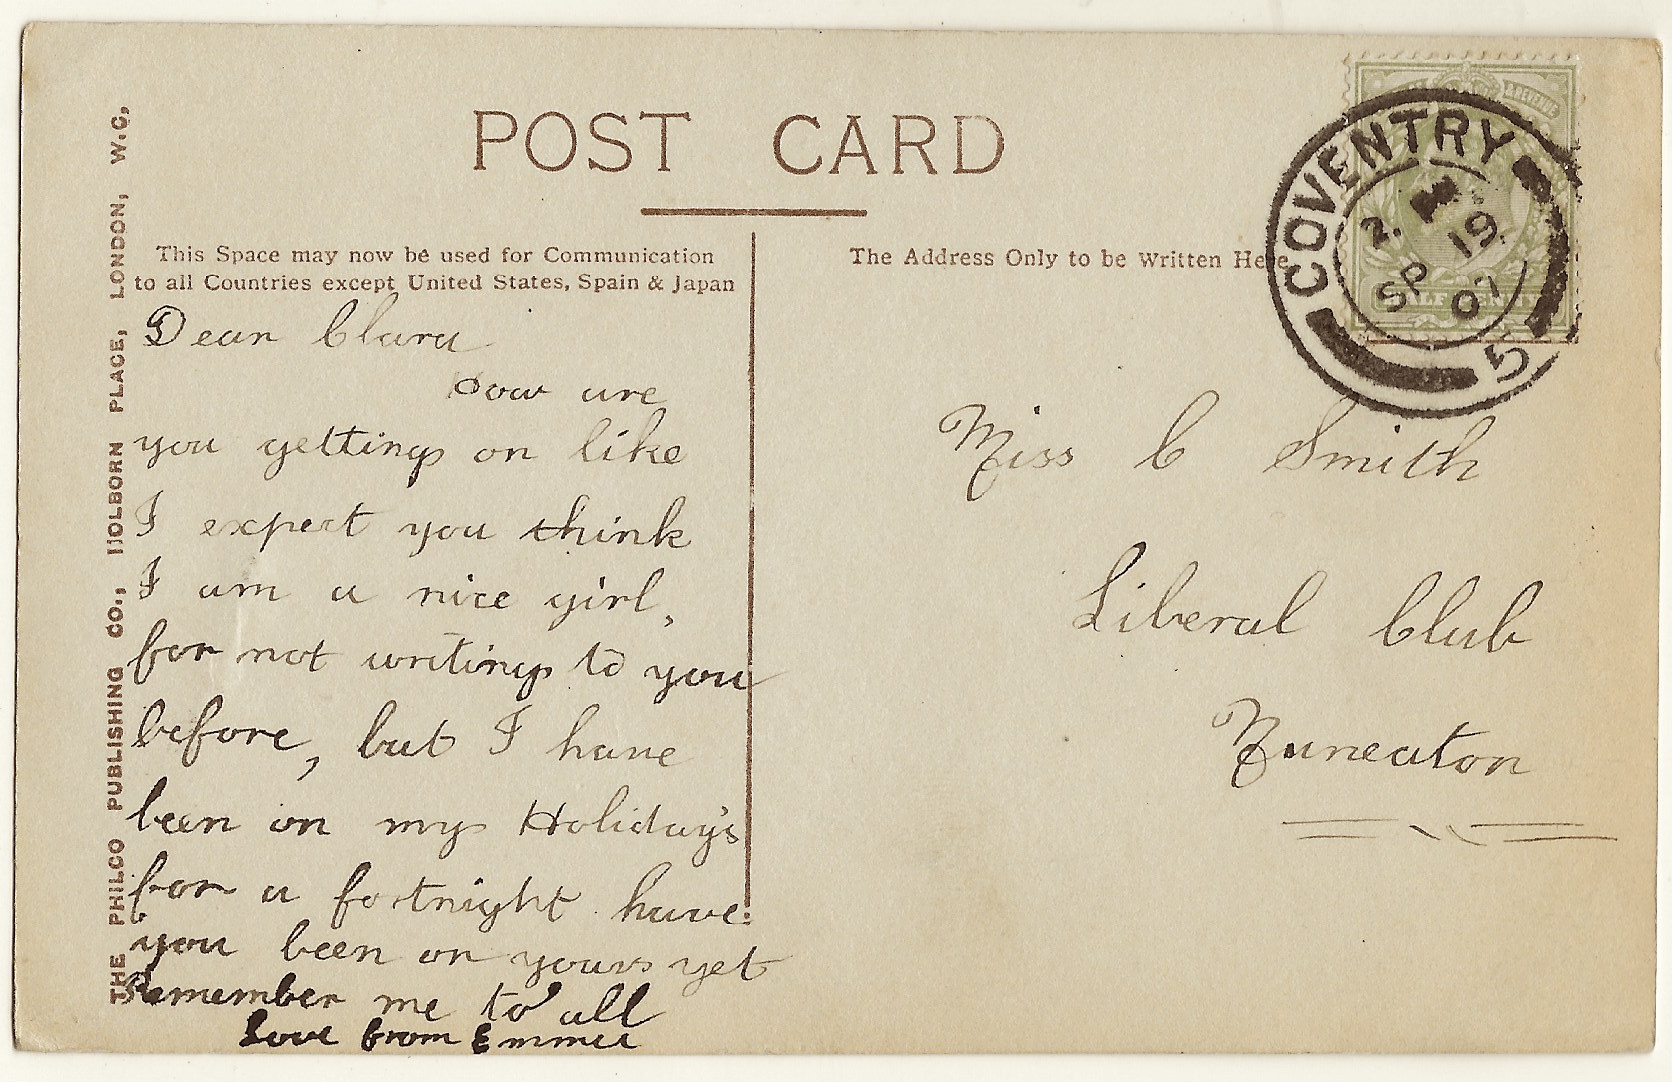 POST CARD
THE PHILCO PUBLISHING CO., HOLBORN PLACE, LONDON, W.C.
This Space may now be used for Communication
to all Countries except United States, Spain & Japan
Dear Clara
How are
you getting on like
I expect you think
I am a nice girl,
for not writing to you
before, but I have
been on my Holiday's
for a fortnight have
you been on yours yet
Remember me to all
Love from Emma
The Address Only to be Written Here
COVENTRY
2.
SP 19
07
5
Miss C Smith
Liberal Club
Nuneaton